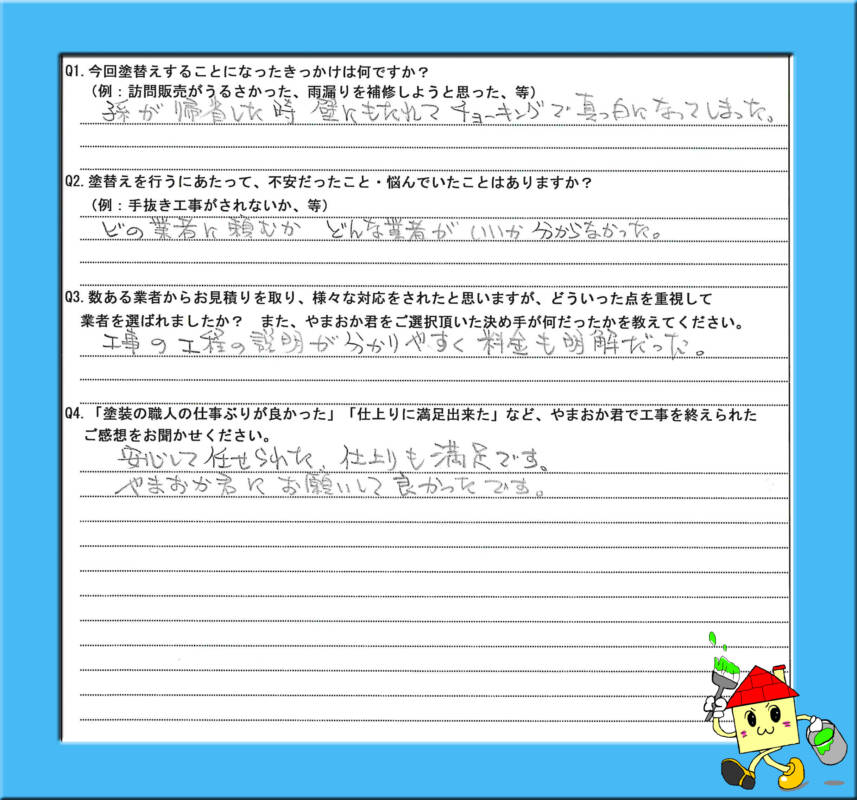 Q1. 今回塗替えすることになったきっかけは何ですか？
（例：訪問販売がうるさかった、雨漏りを補修しようと思った、等）
孫が帰省した時 壁にもたれて チョーキングで真っ白になってしまった。
Q2. 塗替えを行うにあたって、不安だったこと・悩んでいたことはありますか？
（例：手抜き工事がされないか、等）
どの業者に頼むか どんな業者が いいか 分からなかった。
Q3. 数ある業者からお見積りを取り、様々な対応をされたと思いますが、どういった点を重視して
業者を選ばれましたか？ また、やまおか君をご選択頂いた決め手が何だったかを教えてください。
工事の工程の説明が分かりやすく 料金も明解だった。
Q4. 「塗装の職人の仕事ぶりが良かった」「仕上りに満足出来た」など、やまおか君で工事を終えられた
ご感想をお聞かせください。
安心して任せられた、仕上りも満足です。
やまおか君に お願いして 良かったです。